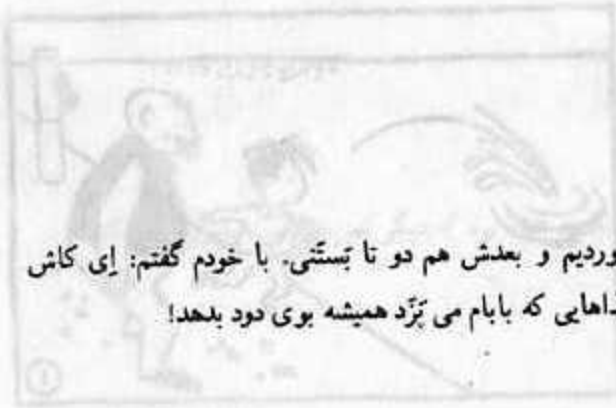 وردیم و بعدش هم دو تا بَستَنی. با خودم گفتم: اِی کاش
داهایی که بابام می پَزَد همیشه بوی دود بدهد!